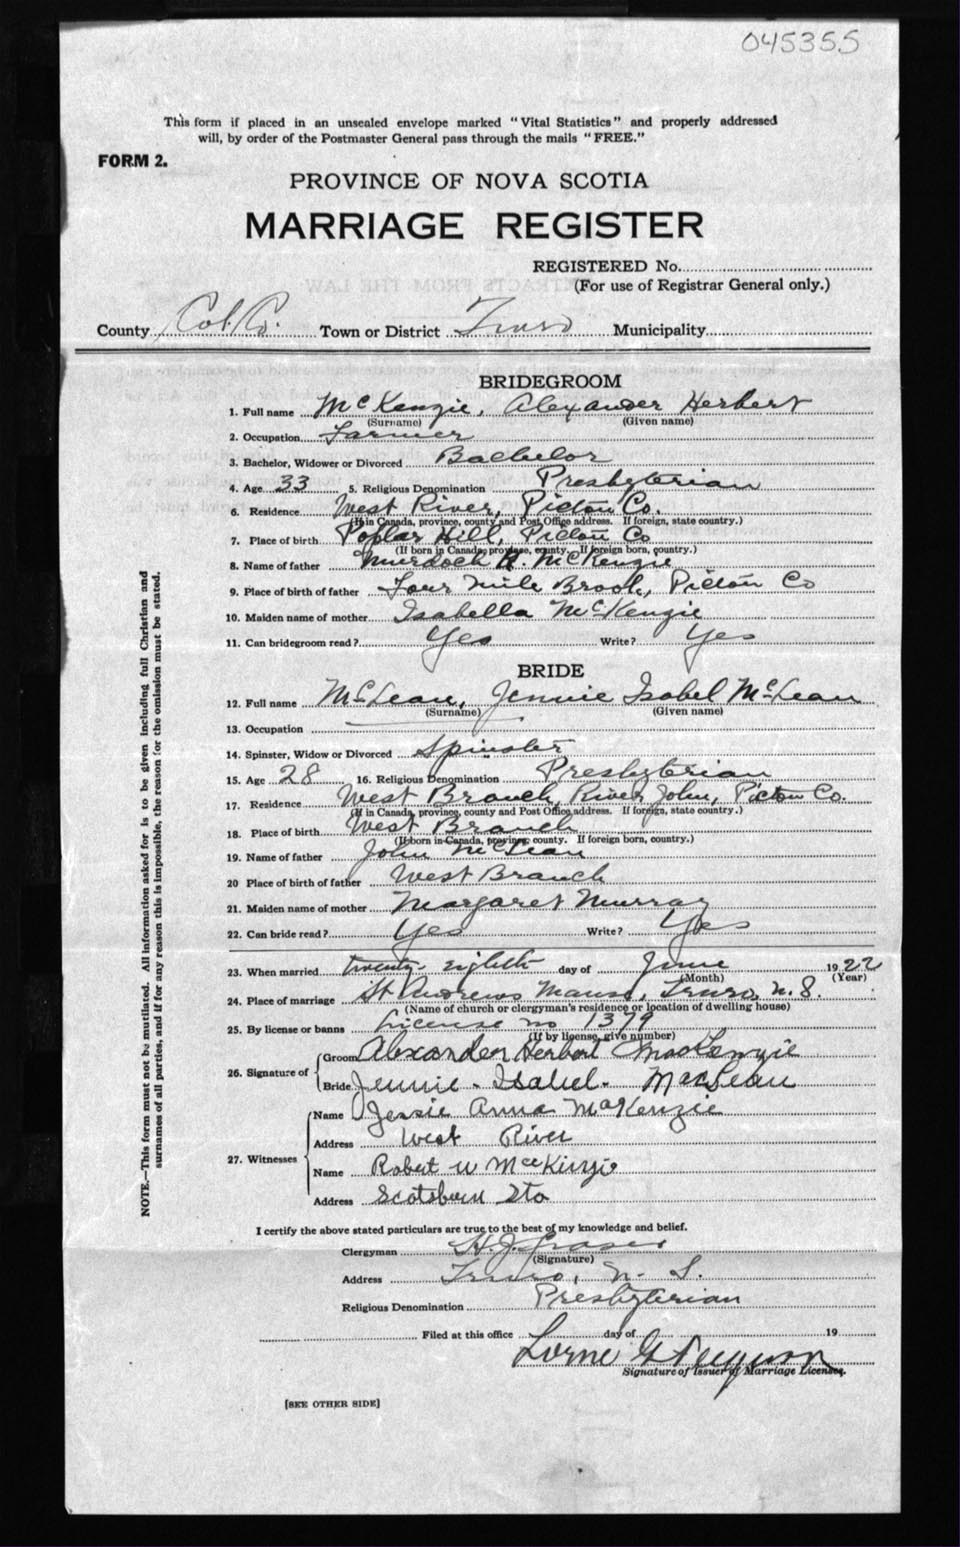 045355
This form if placed in an unsealed envelope marked "Vital Statistics" and properly addressed
will, by order of the Postmaster General pass through the mails "FREE."
FORM 2.
PROVINCE OF NOVA SCOTIA
MARRIAGE REGISTER
REGISTERED No.
(For use of Registrar General only.)
County Col. Co. Town or District Truro Municipality
BRIDEGROOM
1. Full name McKenzie, Alexander Herbert
(Surname) (Given name)
2. Occupation Farmer
3. Bachelor, Widower or Divorced Bachelor
4. Age 33 5. Religious Denomination Presbyterian
6. Residence West River, Pictou Co.
(If in Canada, province, county and Post Office address. If foreign, state country.)
7. Place of birth Poplar Hill, Pictou Co
(If born in Canada, province, county. If foreign born, country.)
8. Name of father Murdoch R. McKenzie
9. Place of birth of father Four Mile Brook, Pictou Co
10. Maiden name of mother Isabella McKenzie
11. Can bridegroom read? Yes Write? Yes
BRIDE
12. Full name McLean, Jennie Isabel McLean
(Surname) (Given name)
13. Occupation
14. Spinster, Widow or Divorced Spinster
15. Age 28 16. Religious Denomination Presbyterian
17. Residence West Branch, River John, Pictou Co.
(If in Canada, province, county and Post Office address. If foreign, state country.)
18. Place of birth West Branch
(If born in Canada, province, county. If foreign born, country.)
19. Name of father John McLean
20 Place of birth of father West Branch
21. Maiden name of mother Margaret Murray
22. Can bride read? Yes Write? Yes
23. When married twenty-eighth day of June 1922
(Month) (Year)
24. Place of marriage St Andrews Manse, Truro, N.S.
(Name of church or clergyman's residence or location of dwelling house)
25. By license or banns License no 1379
(If by license, give number)
26. Signature of
Groom Alexander Herbert MacKenzie
Bride Jennie - Isabel - MacLean
27. Witnesses
Name Jessie Anna McKenzie
Address West River
Name Robert W McKinzie
Address Scotsburn Sta
I certify the above stated particulars are true to the best of my knowledge and belief.
Clergyman H. J. Fraser
(Signature)
Address Truro, N. S.
Religious Denomination Presbyterian
Filed at this office day of 19
Lorne G Ferguson
Signature of Issuer of Marriage Licenses.
[SEE OTHER SIDE]
NOTE.—This form must not be mutilated. All information asked for is to be given including full Christian and
surnames of all parties, and if for any reason this is impossible, the reason for the omission must be stated.